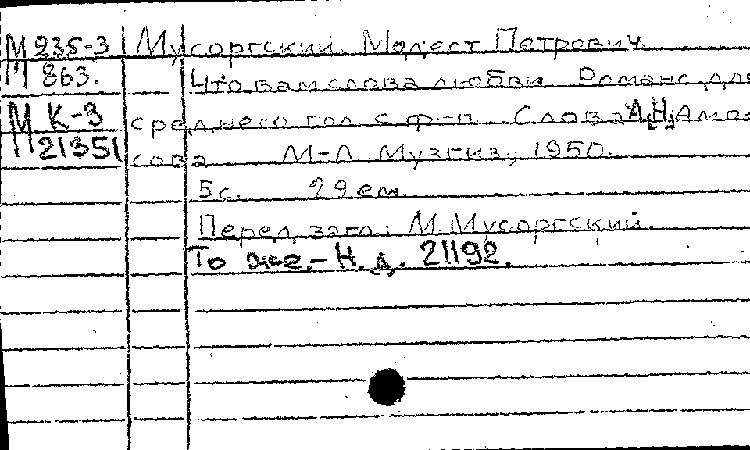 М 235-3 Мусоргский Модест Петрович
М 863. Что вам слова любви Романс для
М К-3 среднего гол с ф-п. Слова А.Н. Аммо-
21351 сова М-Л Музгиз, 1950.
5 с. 29 см
Перед загл: М Мусоргский.
То же.- Н.д. 21192.